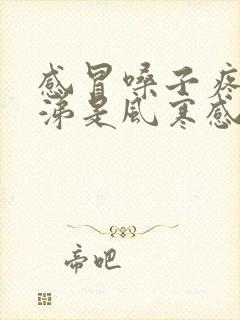 感冒嗓子疼
涕是风寒感
帝吧